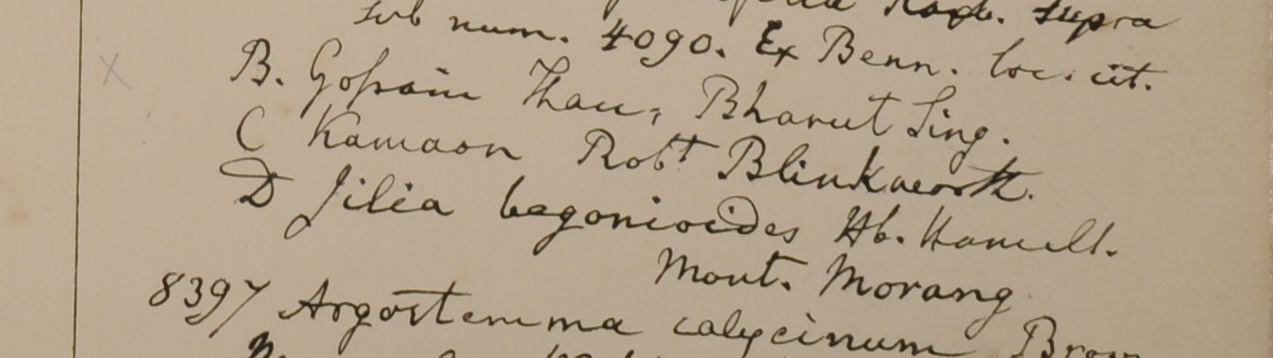 Roxb. supra
sub num. 4090. Ex Benn. loc. cit.
B. Gossain Than, Bharut Sing.
C Kamaon Robt Blinkworth.
D Jilia begonioides Hb. Hamilt.
Mont. Morang
8397 Argostemma calycinum